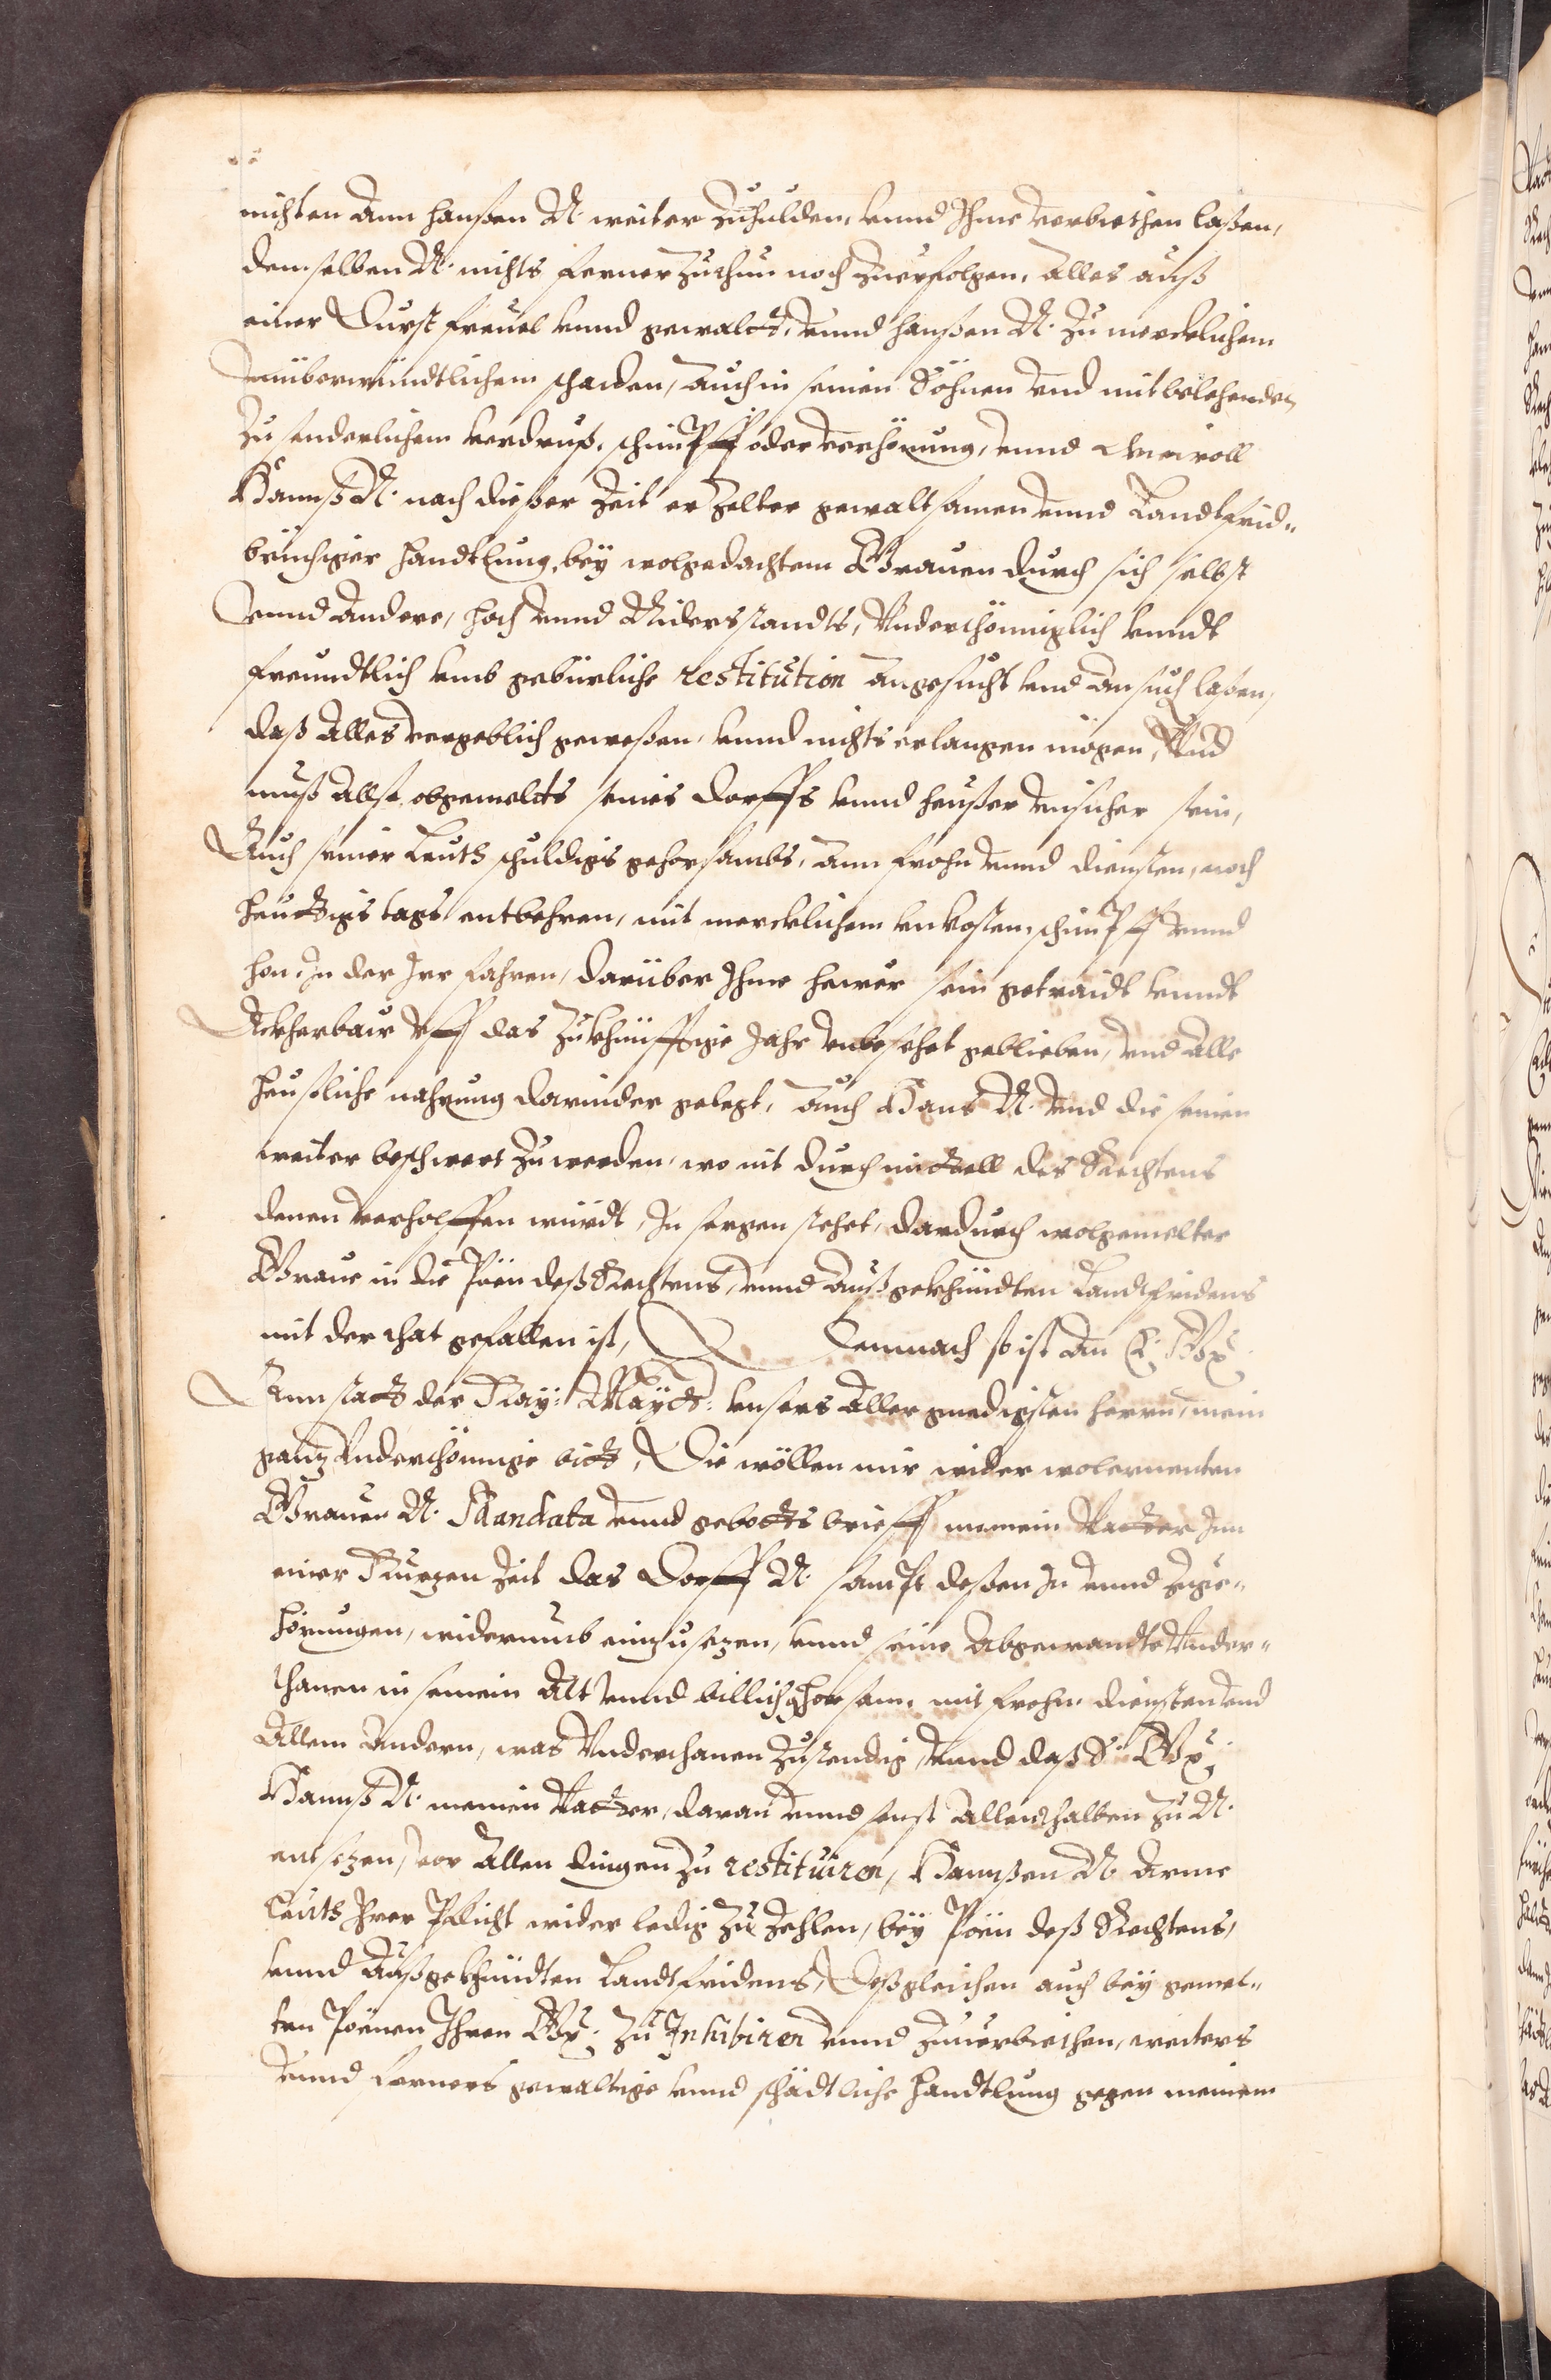 nichten ann hanßen N. weiter zuhulden, vnnd Ihme verbiethen laßen,
demselben N. nichts ferner zuthun noch zuerfolgen, Alles auß
einer Durst freuel vnnd gewaldt, vnnd hanßen N. zu mercklichem
vnüberwündtlichem schaden, auch in seinen Söhnen vnd mitbelehenden
zu sonderlichem verdruß, schimpff oder verhönung, vnnd wiewoll
Hannß N. nach dießer Zeit erzelter gewaltsamen vnnd Landtfrid„
brüchiger handtlung, bey wolgedachtem Grauen durch sich selbst
vnnd Andere, hoch vnnd Niders standts, Vnderthöniglich vnndt
freundtlich vmb gebürliche restitution Angesucht vnd Ansuch laßen,
daß Alles vergeblich geweßen, vnnd nichts erlangen mögen, Vnd
muß Allso obgemelts seines Dorffs vnnd heußer vnsicher sein,
Auch seiner Leuth schuldigs gehorsambs, Ann frohn vnnd diensten, noch
heuttigs tags entbehren, mit mercklichem vnkosten, schimpff vnnd
hon, In der Irr fahren, darüber Ihme hewer sein getraidt vnndt
Ackherbaw vff das zukhünfftige Jahr vnbesehet geblieben, vnd Alle
heußliche nahrung darnider gelegt, Auch Hans N. vnd die seinen
weiter beschwert zu werden, wo nit durch mittell des Rechtens
denen verholffen würdt, In sorgen stehet, dardurch wolgemelter
Graue in die Pöen deß Rechtens, vnnd Außgekhündten Landtfridens
mit der that gefallen ist, Demnach so ist An E. Gn:
Ann statt der Kay: Maytt: vnsers Aller gnedigsten herrn, mein
gantz Vnderthönnige bitt, Die wöllen mir wider wolernenten
Grauen N. Mandata vnnd gebotts brieff meinem Vatter Inn
einer Kurtzen Zeit das Dorff N. sampt deßen In vnnd Zuge„
hörungen, widerumb einzusetzen, vnnd seine Abgewandte Vnder„
thanen in seinem Alt vnnd billich ghorsam, mit frohn diensten vnd
Allem Andern, was Vnderthanen zustendig, vnnd daß S. Gn:
Hannß N. meinen Vatter, daran vnnd sonst Allenthalben zu N.
entsetzen, vor Allen dingen zu restituiren, Hannßen N. Arme
Leuth Ihrer Pflicht wider ledig zu Zehlen, bey Pöen deß Rechtens,
vnnd Außgekhündten Landtfridens, Deßgleichen auch bey gemel„
ten Pöenen Ihren Gn: zu Inhibiren vnnd zuuerbiethen, weiters
vnnd ferners gewaltige vnnd schädtliche handtlung gegen meinem